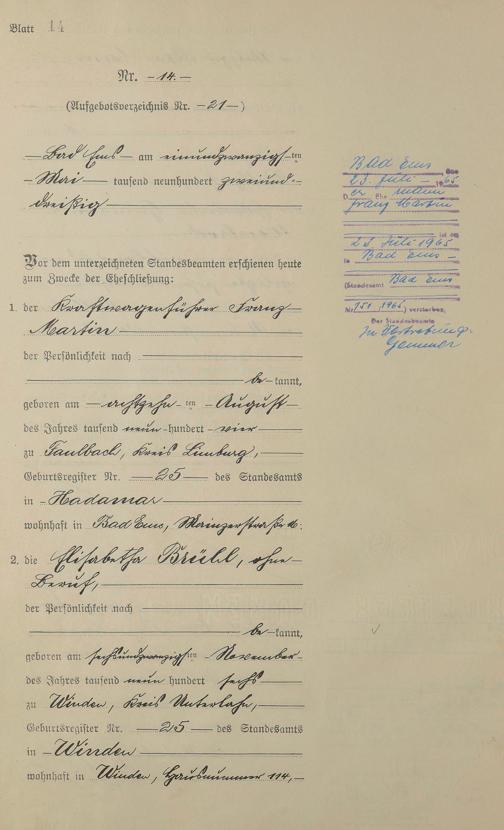 Blatt 14
Nr. -14.-
(Aufgebotsverzeichnis Nr. -21-)
Bad Ems am einundzwanzigsten
Mai tausend neunhundert zweiund-
dreißig
Vor dem unterzeichneten Standesbeamten erschienen heute
zum Zwecke der Eheschließung:
1. der Kraftwagenführer Franz
Martin
der Persönlichkeit nach
be-kannt,
geboren am achtzehn-ten August
des Jahres tausend neun-hundert vier
zu Faulbach, Kreis Limburg,
Geburtsregister Nr. 25 des Standesamts
in Hadamar
wohnhaft in Bad Ems, Mainzerstraße
2. die Elisabetha Brühl, ohne
Beruf,
der Persönlichkeit nach
be-kannt,
geboren am sechsundzwanzigsten November
des Jahres tausend neun hundert sechs
zu Winden, Kreis Unterlahn,
Geburtsregister Nr. 25 des Standesamts
in Winden
wohnhaft in Winden, Hausnummer 114,
Bad Ems
23. Juli 1965
Ehemann
Franz Martin
ist am
Juli 1965
in Bad Ems
(Standesamt Bad Ems
Nr. 1965) verstorben.
Der Standesbeamte
In Vertretung: